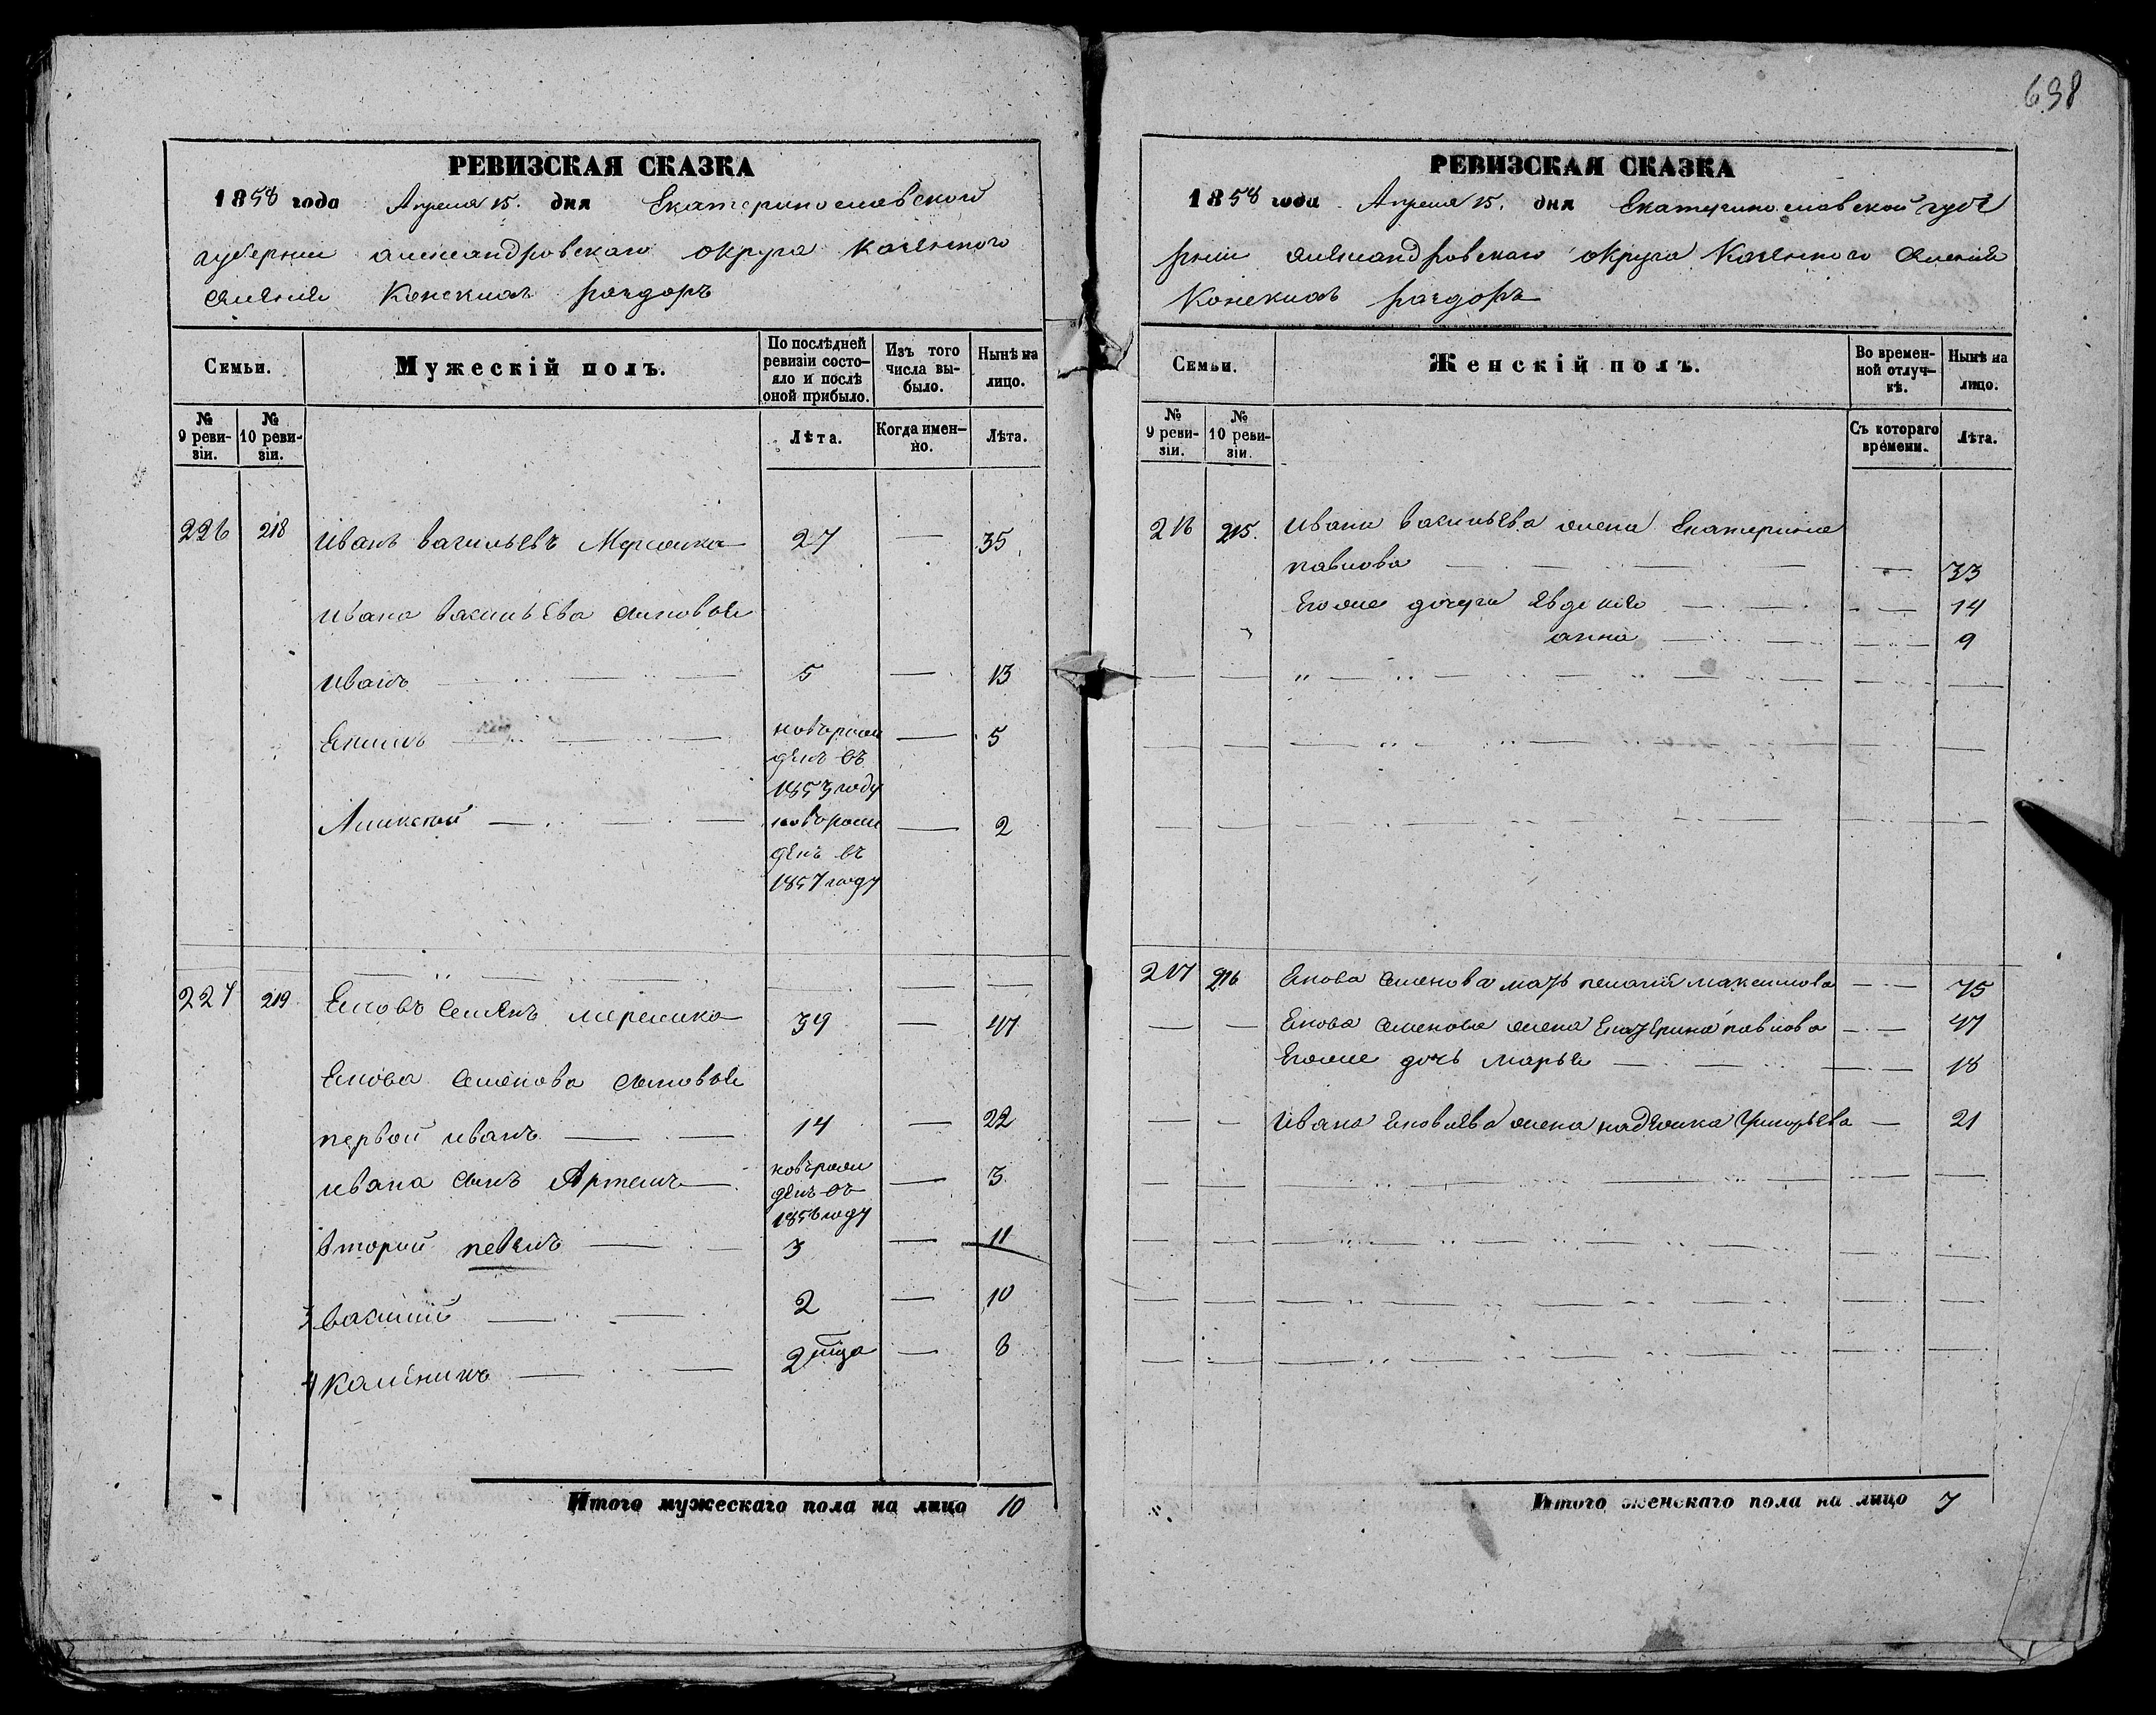 638
РЕВИЗСКАЯ СКАЗКА
1858 года Апреля 15. дня Екатеринославской
губернии александровскаго округа казеннаго
селения Конскихъ раздоръ
Семьи.
Мужескій полъ.
По послѣдней ревизіи состо-яло и послѣ оной прибыло.
Изъ того числа вы-было.
Нынѣ на лицо.
№ 9 реви-зіи.
№ 10 реви-зіи.
Лѣта.
Когда имен-но.
Лѣта.
226 218 Иванъ васильевъ 27 — 35
ивана васильева сыновья
иванъ 5 — 13
Екимъ новорож — 5
денъ въ
1853 году
Алексей новорож — 2
денъ въ
1857 году
227 219 Ековъ семенъ 39 — 47
Екова семенова сыновья
первой иванъ 14 — 22
ивана сынъ Артемъ новорож — 3
денъ въ
1856 году
вторий 3 — 11
3 василий 2 — 10
4 калиникъ 2 мца — 8
Итого мужескаго пола на лицо 10
РЕВИЗСКАЯ СКАЗКА
1858 года Апреля 15. дня Екатеринославской губе
рнии александровскаго округа Казеннаго селения
Конскихъ раздоръ
Семьи.
Женскій полъ.
Во времен-ной отлуч-кѣ.
Нынѣ на лицо.
№ 9 реви-зіи.
№ 10 реви-зіи.
Съ котораго времени.
Лѣта.
216 215. Ивана васильева жена Екатерина
павлова 33
Егоже дочери Евдокия 14
анна 9
217 216 Екова семенова мать пелагия максимова 75
Екова семенова жена Екатерина павлова 47
Егоже дочь марья 18
Ивана Яковлева жена надежка Григорьева 21
Итого женскаго пола на лицо 7